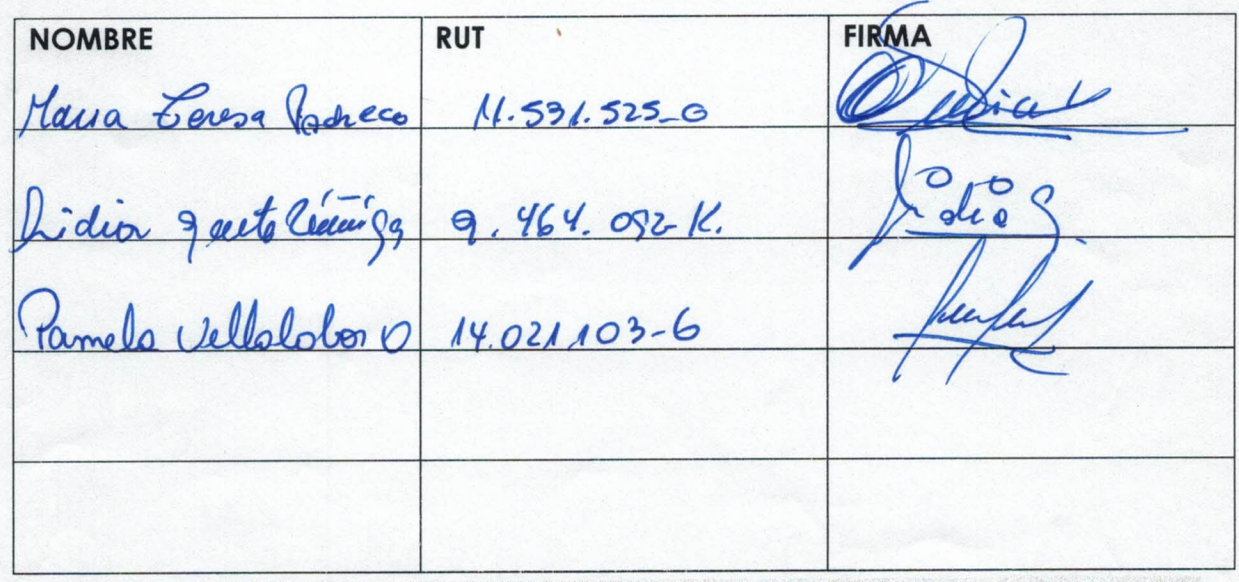 NOMBRE RUT FIRMA
Maria Teresa Pacheco 11.531.525-0
Lidia Zúñiga 9.464.092-K.
Pamela Villalobos O 14.021.103-6
Lidia